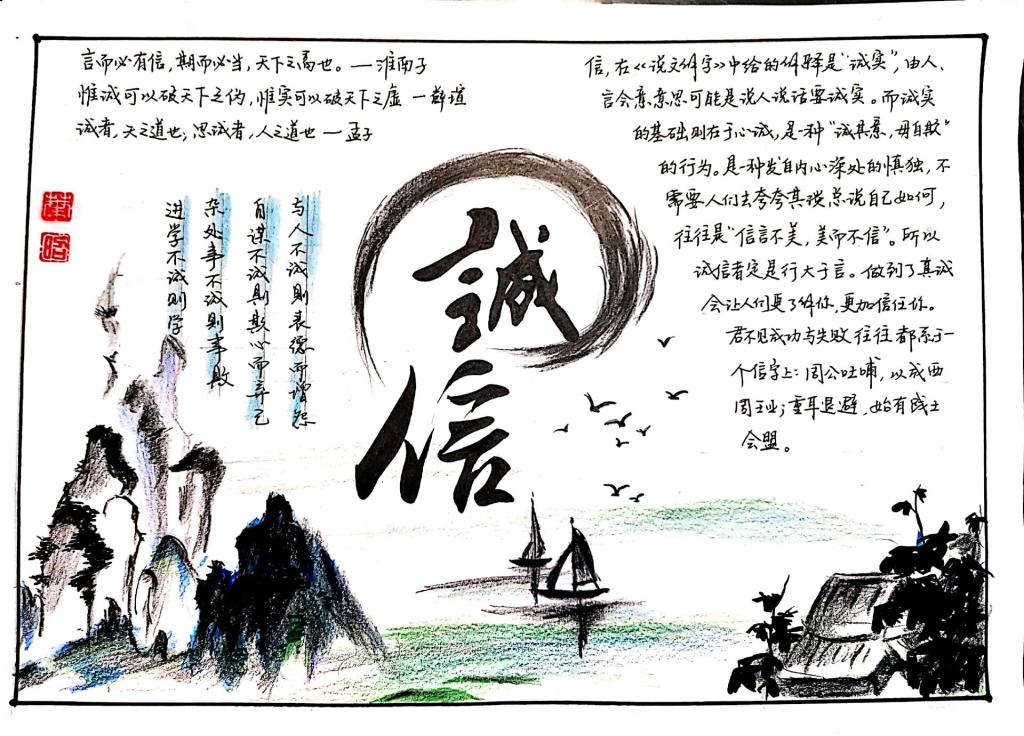 言而必有信,期而必当,天下之高也。— 淮南子
惟诚可以破天下之伪,惟实可以破天下之虚 — 薛瑄
诚者,天之道也,思诚者,人之道也 — 孟子
与人不诚则丧德而增怨
自谋不诚则欺心而弃己
杂处事不诚则事败
进学不诚则学
誠
信
信,在《说文解字》中给的解释是“诚实”,由人、
言会意,意思可能是说人说话要诚实。而诚实
的基础则在于心诚,是一种“诚其意,毋自欺”
的行为。是一种发自内心深处的慎独,不
需要人们去夸夸其谈总说自己如何,
往往是“信言不美,美而不信”。所以
诚信者定是行大于言。做到了真诚
会让人们更了解你,更加信任你。
君不见成功与失败往往都系于一
个信字上:周公吐哺,以成西
周王业;重耳退避,始有践土
会盟。